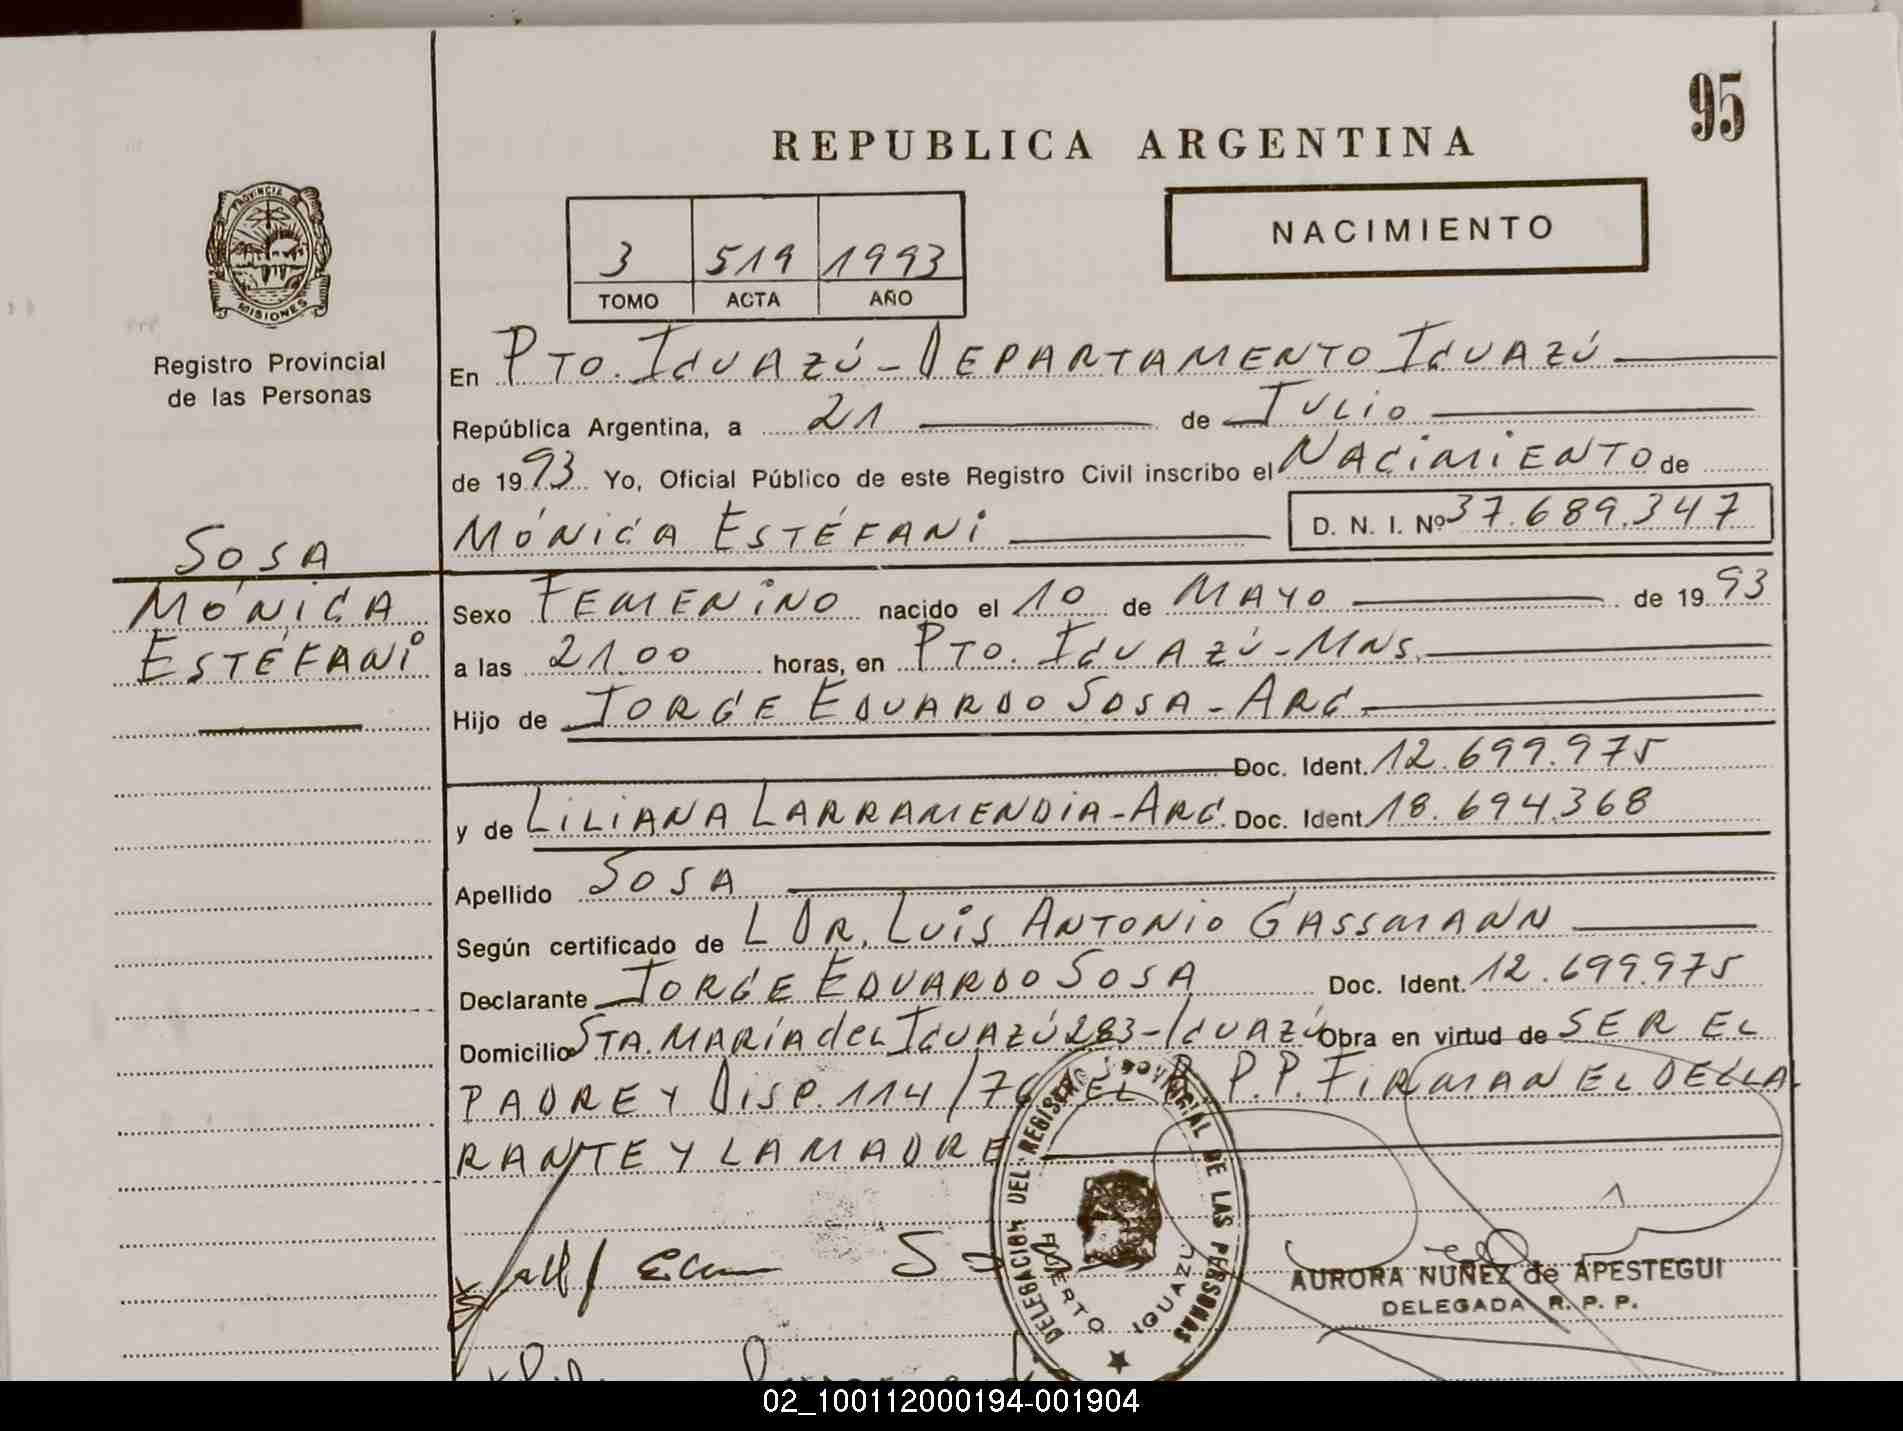 95
REPUBLICA ARGENTINA
PROVINCIA
MISIONES
Registro Provincial
de las Personas
3 519 1993
TOMO ACTA AÑO
NACIMIENTO
En PTO. IGUAZÚ - DEPARTAMENTO IGUAZÚ
República Argentina, a 21 de JULIO
de 1993 Yo, Oficial Público de este Registro Civil inscribo el NACIMIENTO de
MÓNICA ESTÉFANI D. N. I. Nº 37.689.347
SOSA
MÓNICA
ESTÉFANI
Sexo FEMENINO nacido el 10 de MAYO de 1993
a las 21.00 horas, en PTO. IGUAZÚ - MNS.
Hijo de JORGE EDUARDO SOSA - ARG.
Doc. Ident. 12.699.975
y de LILIANA LARRAMENDIA - ARG. Doc. Ident. 18.694.368
Apellido SOSA
Según certificado de L DR. LUIS ANTONIO GASSMANN
Declarante JORGE EDUARDO SOSA Doc. Ident. 12.699.975
Domicilio STA. MARÍA del IGUAZÚ 283 - IGUAZÚ Obra en virtud de SER EL
PADRE Y DISP. 114/76 EL P.P. FIRMAN EL DECLA
RANTE Y LA MADRE
DELEGACION DEL REGISTRO PROVINCIAL DE LAS PERSONAS
PUERTO IGUAZU
AURORA NUÑEZ de APESTEGUI
DELEGADA R. P. P.
02_100112000194-001904